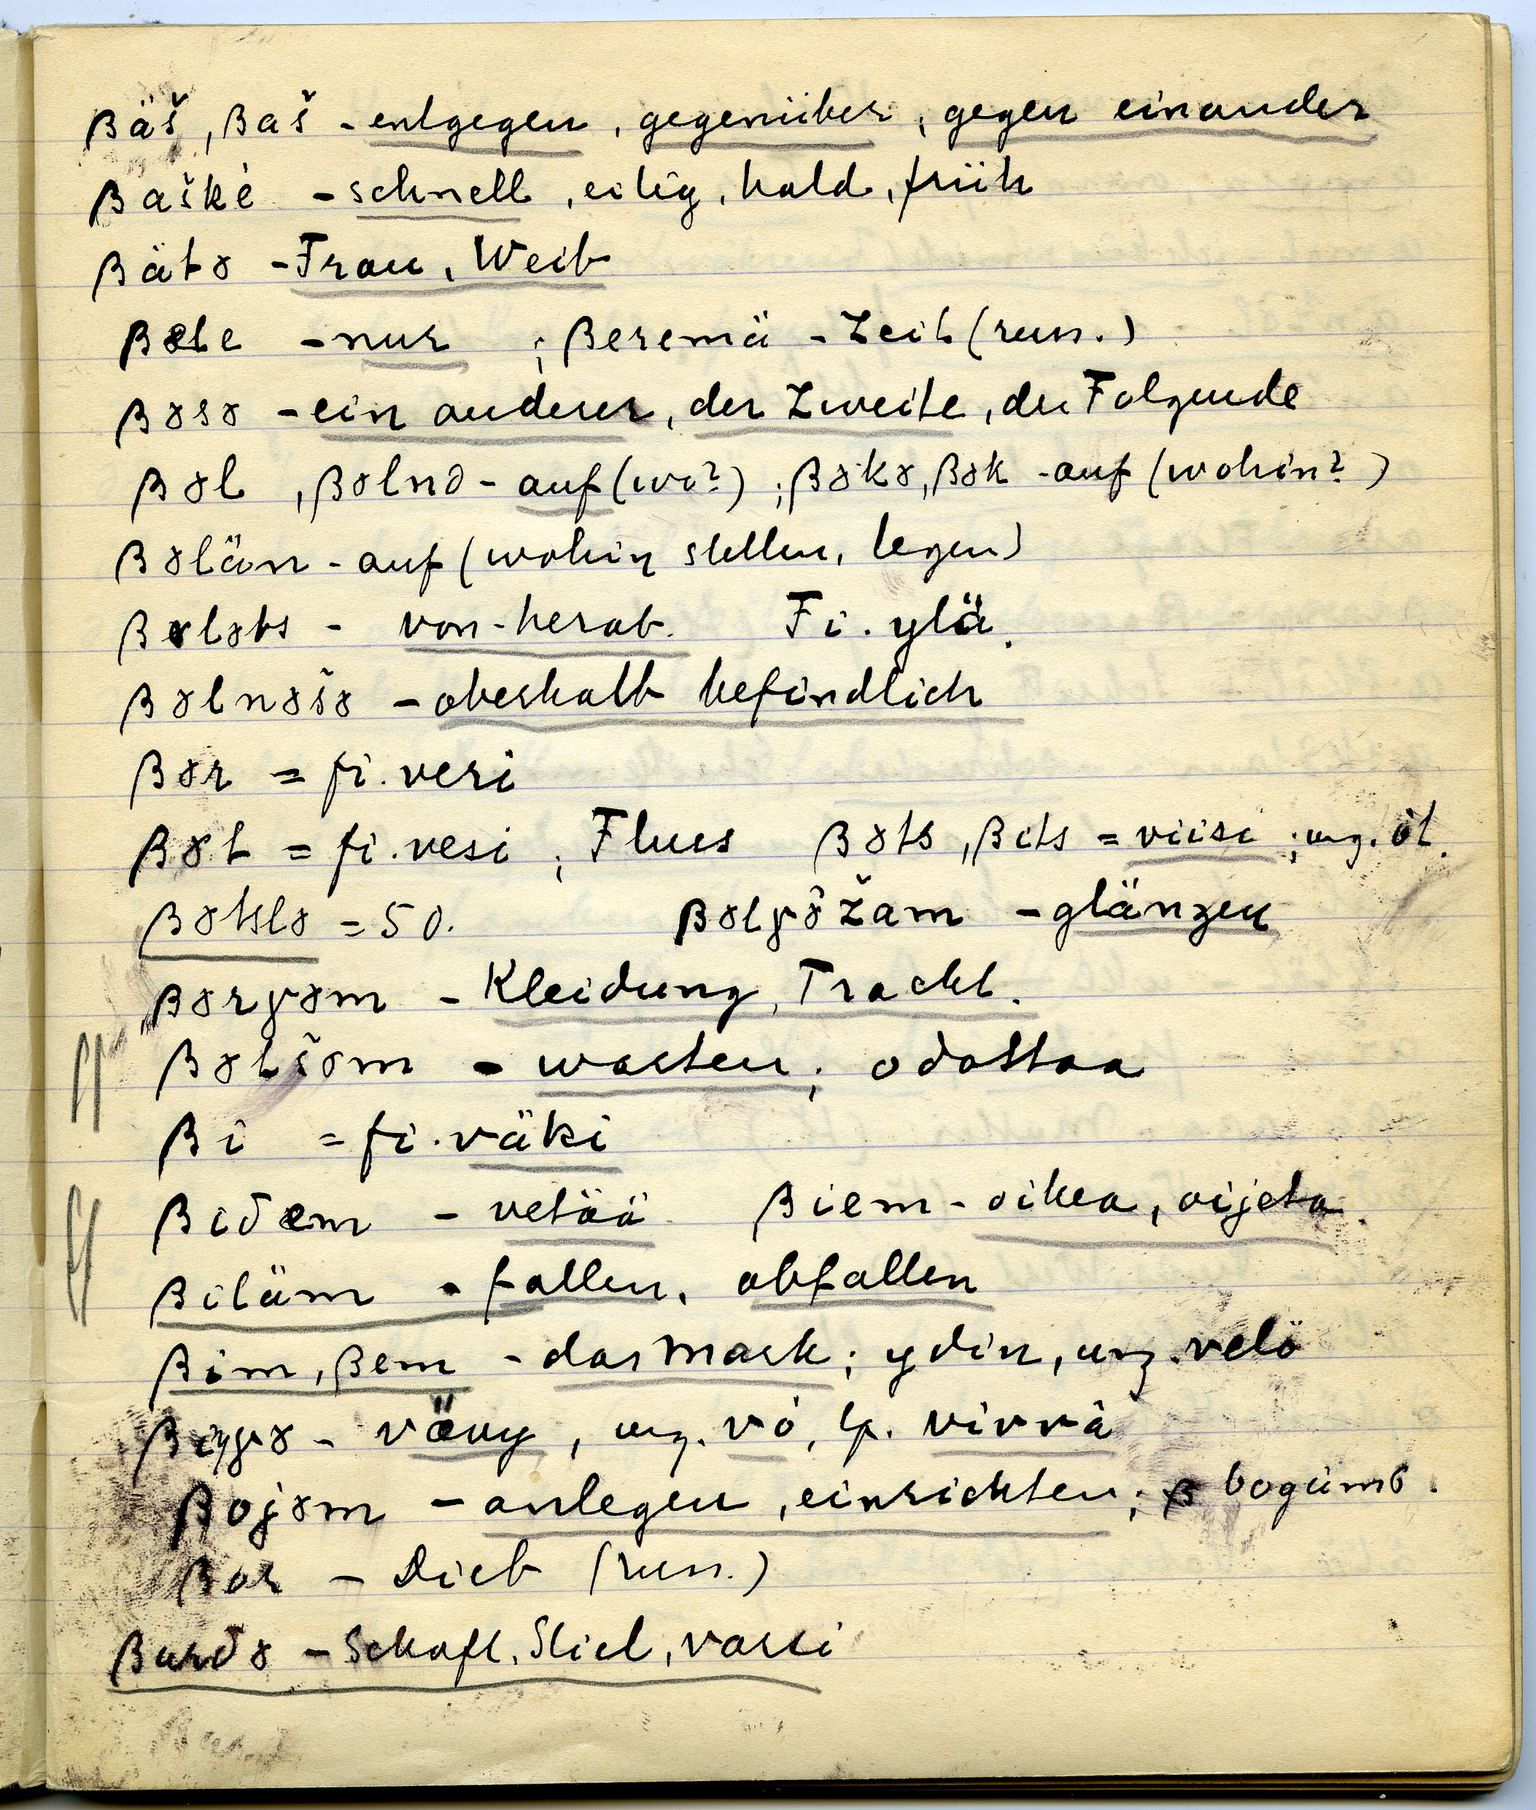 βäš, βaš - entgegen, gegenüber, gegen einander
βaške - schnell, eilig, bald, früh
βätə - Frau, Weib
βele - nur ; βeremä - Zeit (russ.)
βəsə - ein anderer, der Zweite, der Folgende
βəl, βəlnə - auf (wo?) ; βəkə, βək - auf (wohin?)
βəlän - auf (wohin stellen, legen)
βələts - von - herab. Fi. yltä.
βəlnəšə - oberhalb befindlich
βər = fi. veri
βət = fi. vesi ; Fluss βəts, βits = viisi ; ung. öt.
βətslə = 50. βəlγə̂žam - glänzen
βərγəm - Kleidung, Tracht.
βətšəm - warten ; odottaa
βi = fi. väki
βiδem - vetää βiem - oikea, oijeta.
βiläm - fallen, abfallen
βim, βem - das Mark ; ydin, ung. velö
βiŋγə - vävy, ung. vö, lp. vivvâ
βojəm - anlegen, einrichten ;
βor - Dieb (russ.)
βurδə - Schaft, Stiel, varsi